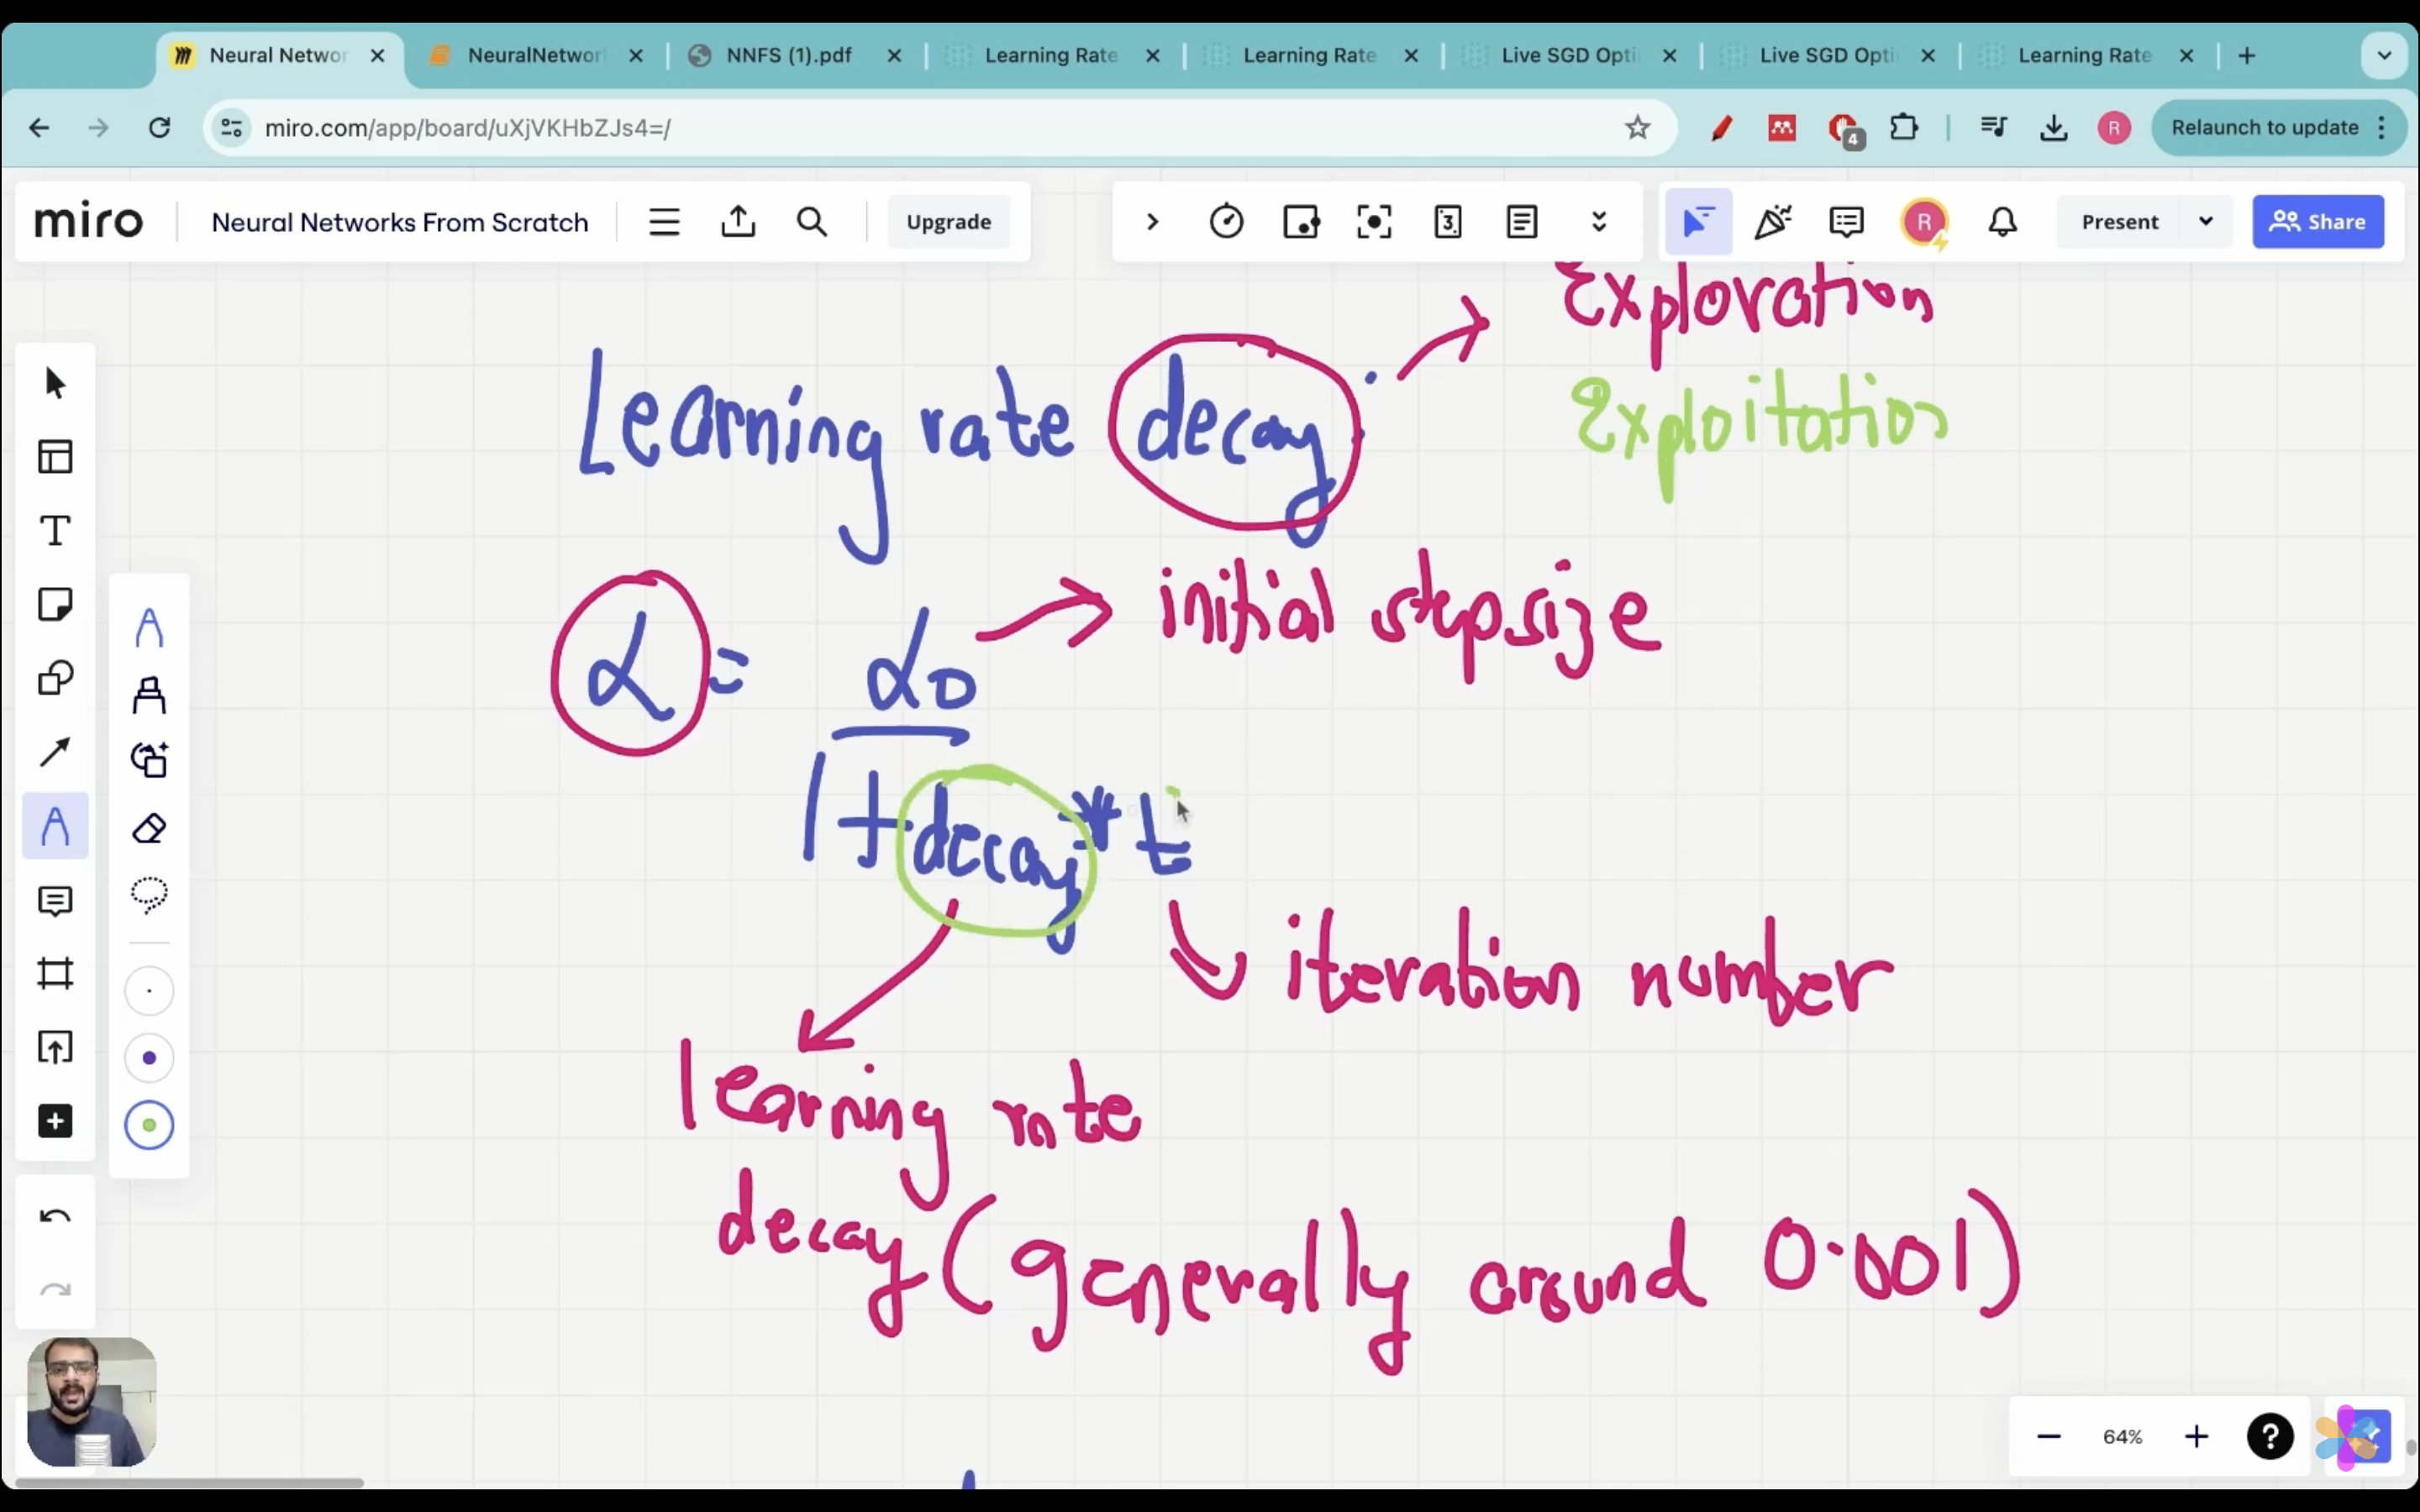 Neural Networ
NeuralNetworl
NNFS (1).pdf
Learning Rate
Learning Rate
Live SGD Opti
Live SGD Opti
Learning Rate
miro.com/app/board/uXjVKHbZJs4=/
4
R
Relaunch to update
miro
Neural Networks From Scratch
Upgrade
3
R
Present
Share
Exploration
Learning rate decay:
Exploitation
α = α0 initial step size
1 + decay * t
iteration number
learning rate
decay (generally around 0.001)
T
64%
?